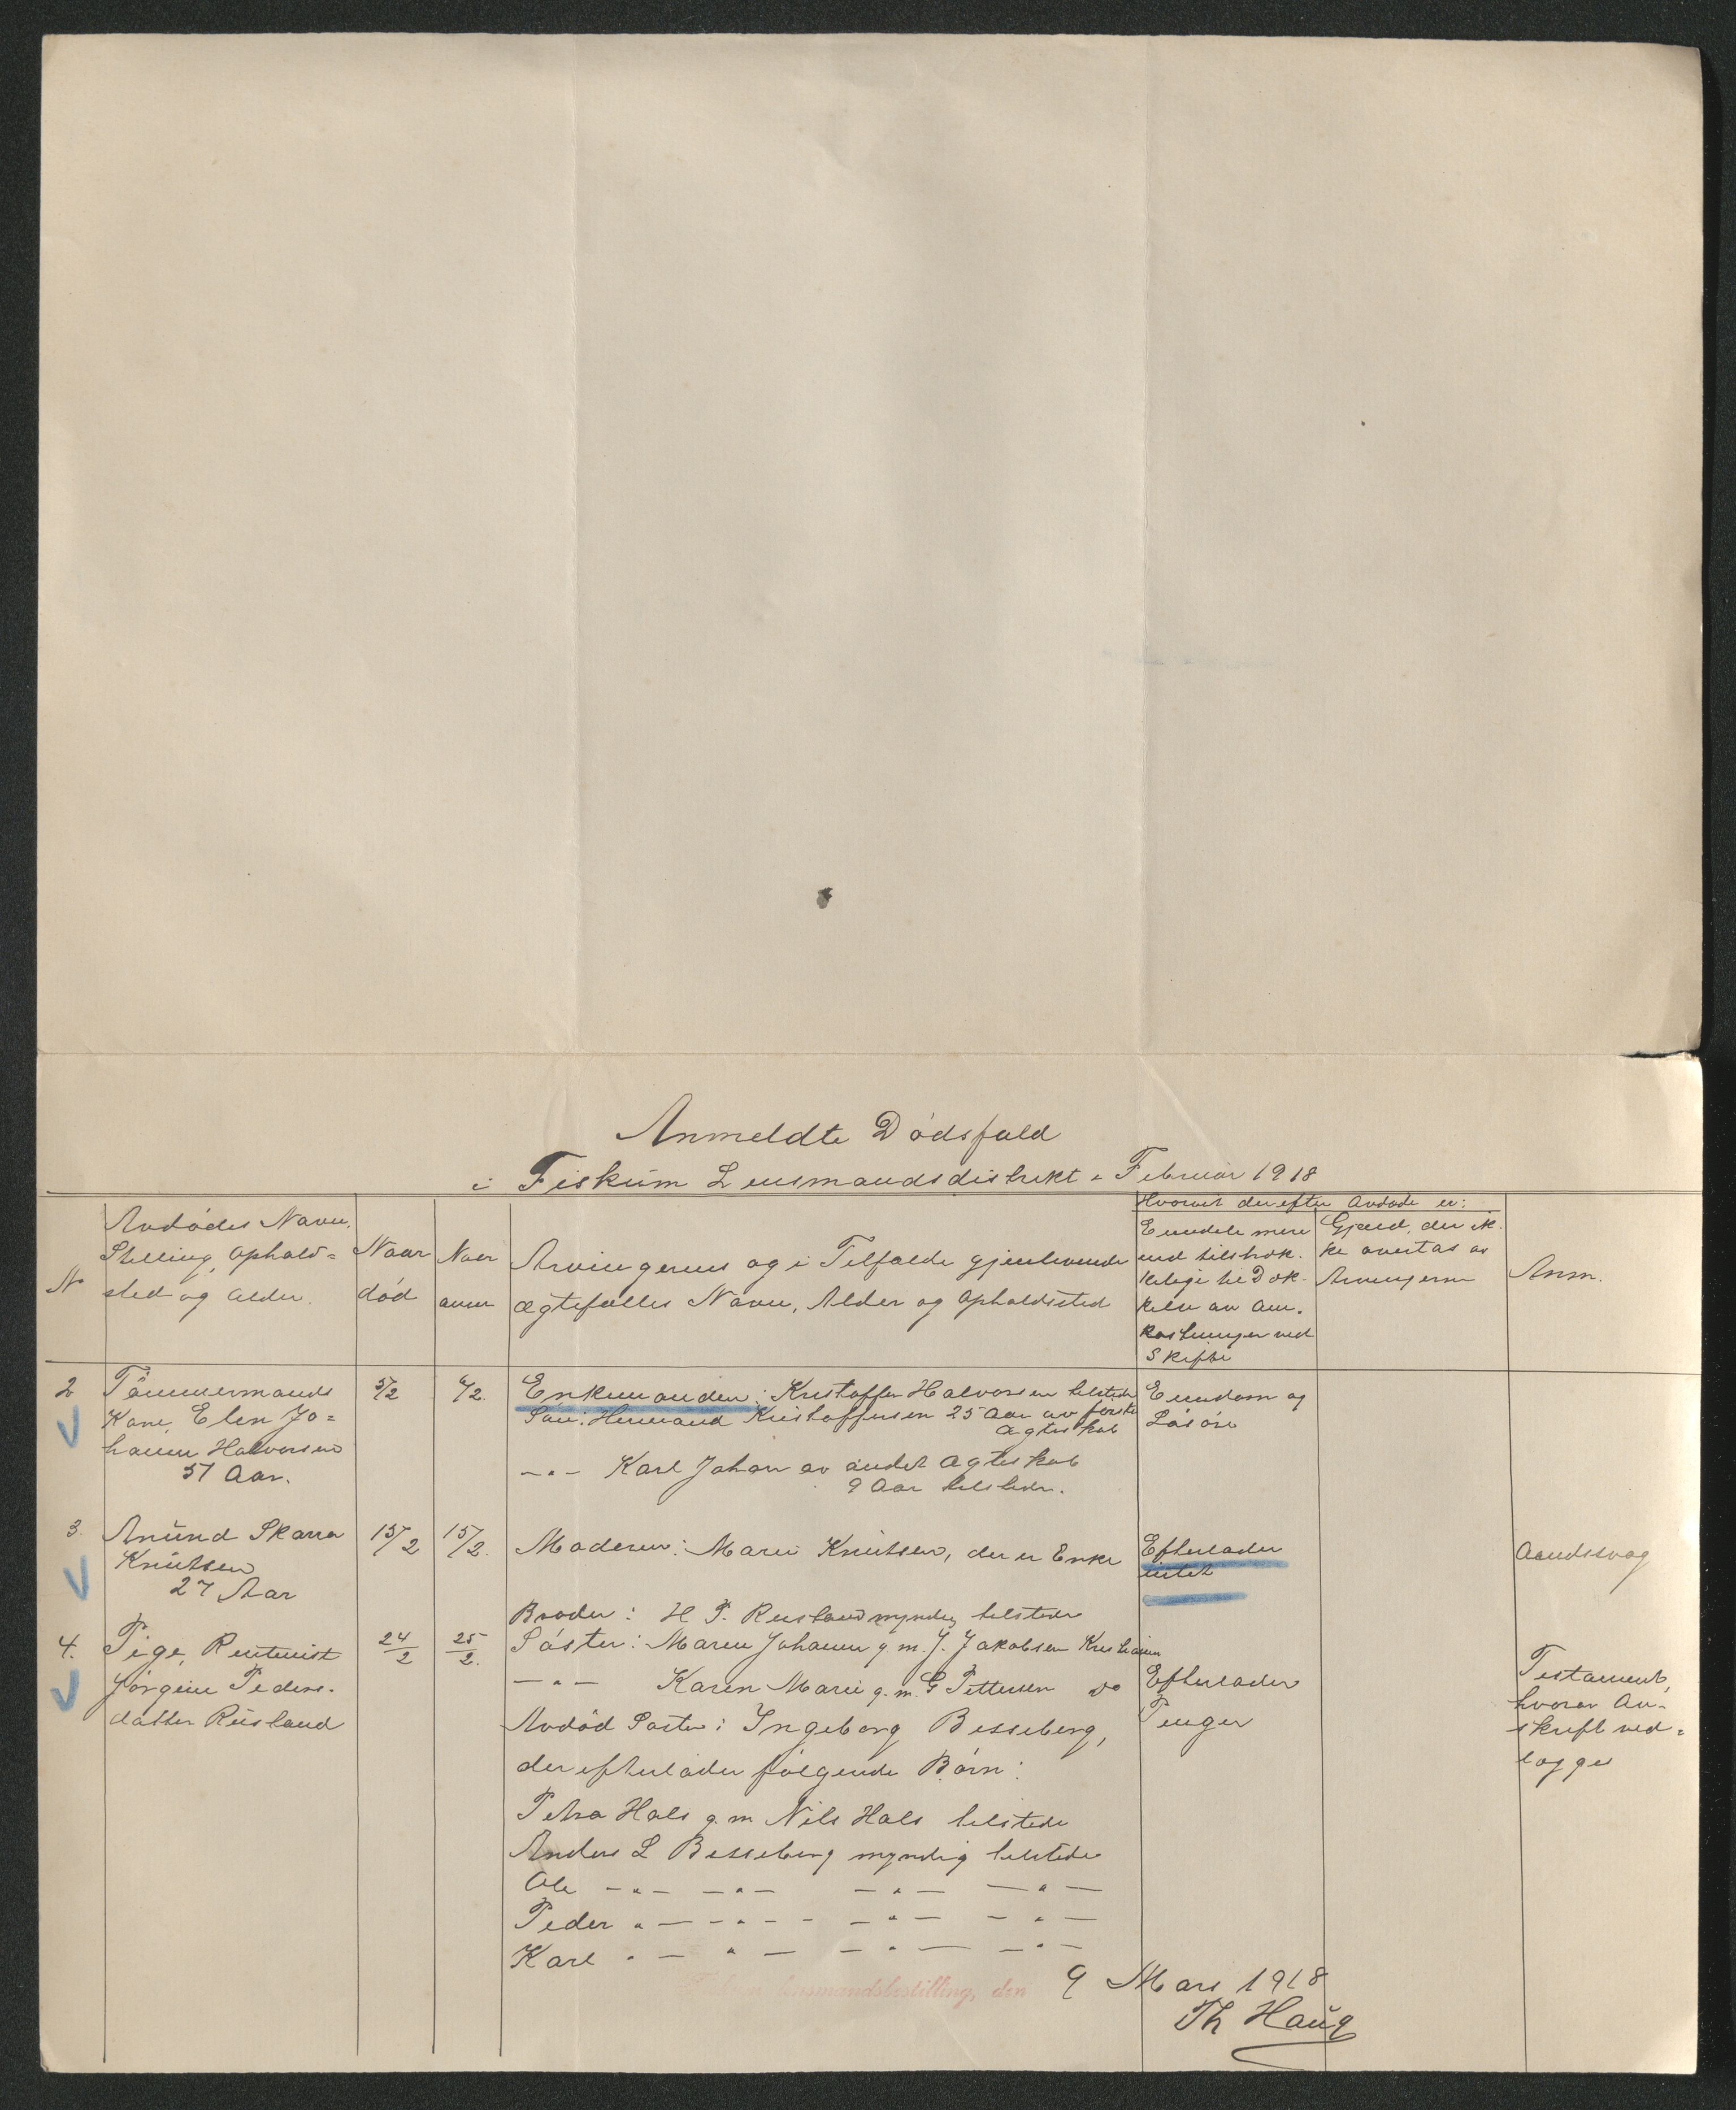 Anmeldte Dødsfald
i Fiskum Lensmandsdistrikt i Februar 1918
No
Avdødes Navn,
Stilling, Ophold=
sted og Alder.
Naar
død
Naar
anm
Arvingernes og i Tilfælde gjenlevende
Ægtefælles Navn, Alder og Opholdssted
Hvorvidt der efter Avdøde er:
Eiendele mere
end tilstræk-
kelige til Dæk-
kelse av Om-
kostninger ved
Skifte
Gjæld, der ik-
ke overtas av
Arvingerne
Anm.
2
Tømmermands
Kone, Elen Jo=
hanne Halvorsen
51 Aar.
5/2
6/2.
Enkemanden: Kristoffer Halvorsen tilstede
Søn: Hermand Kristoffersen 25 Aar av første
Ægteskab
-"- Karl Johan av andet Ægteskab
9 Aar tilstede.
Eiendom og
Løsøre
3.
Anund Skarra
Knutsen
27 Aar
15/2
15/2.
Moderen: Maren Knutsen, der er Enke
Efterlader
intet
Aandssvag
4.
Pige, Rentenist
Jørgine Peders-
datter Rusland
24/2
25/2.
Broder: H P. Rusland myndig tilstede
Søster: Maren Johanne g. m. J. Jakobsen Kristiania
-"- Karen Marie g. m. G Pettersen do
Avdød Søster: Ingeborg Besseberg,
der efterlader følgende Børn:
Petra Hals g. m Nils Hals tilstede
Anders L Besseberg myndig tilstede
Ole -"- -"- -"- -"-
Peder -"- -"- -"- -"-
Karl -"- -"- -"- -"-
Efterlader
Penger
Testament,
hvorav Av-
skrift ved=
lægges
lensmandsbestilling, den 9 Mars 1918
Th Haug